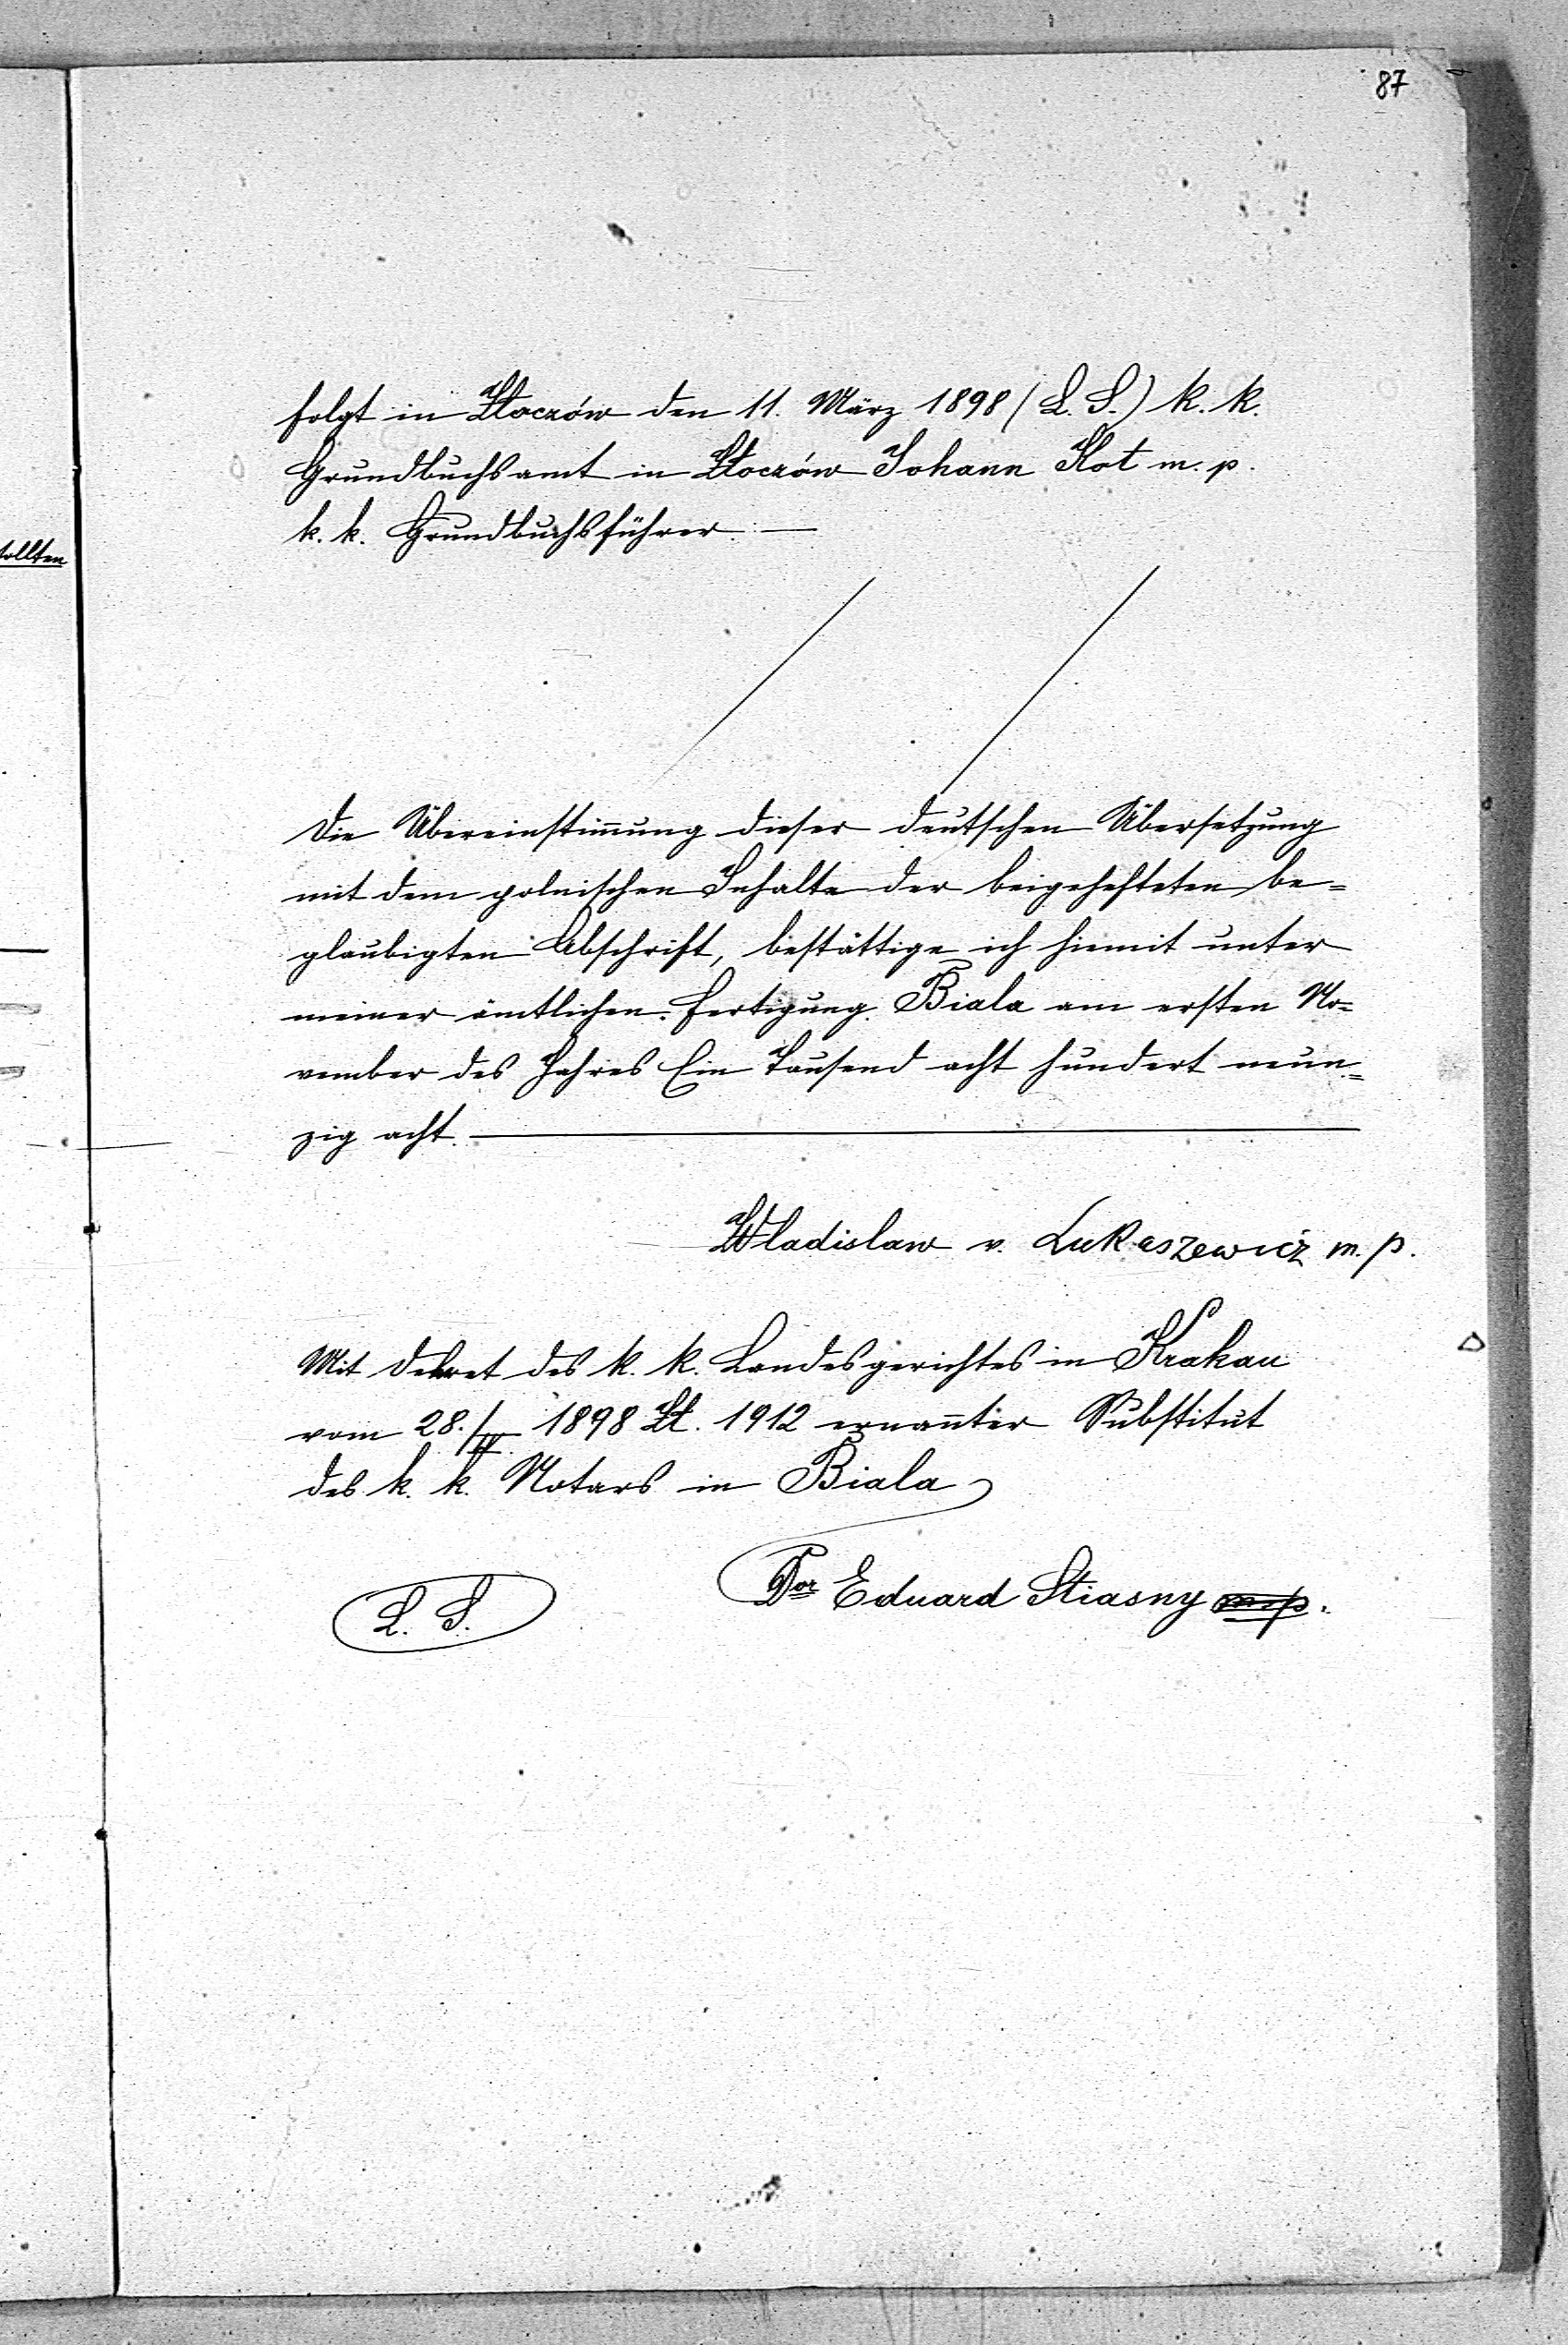 87
folgt in Złoczów den 11. März 1898 (L. S.) k. k.
Grundbuchsamt in Złoczów Johann Kot m. p.
k. k. Grundbuchsführer. —
Die Übereinstimmung dieser deutschen Übersetzung
mit dem polnischen Inhalte der beigehefteten be=
glaubigten Abschrift, bestättige ich hiemit unter
meiner ämtlichen Fertigung. Biala am ersten No=
vember des Jahres Ein Tausend acht hundert neun=
zig acht.
Wladislaw v. Lukaszewicz m. p.
Mit Dekret des k. k. Landesgerichtes in Krakau
vom 28./IV. 1898 Zl. 1912 ernannter Substitut
des k. k. Notars in Biala
L. S.
Dor Eduard Stiasny mp.